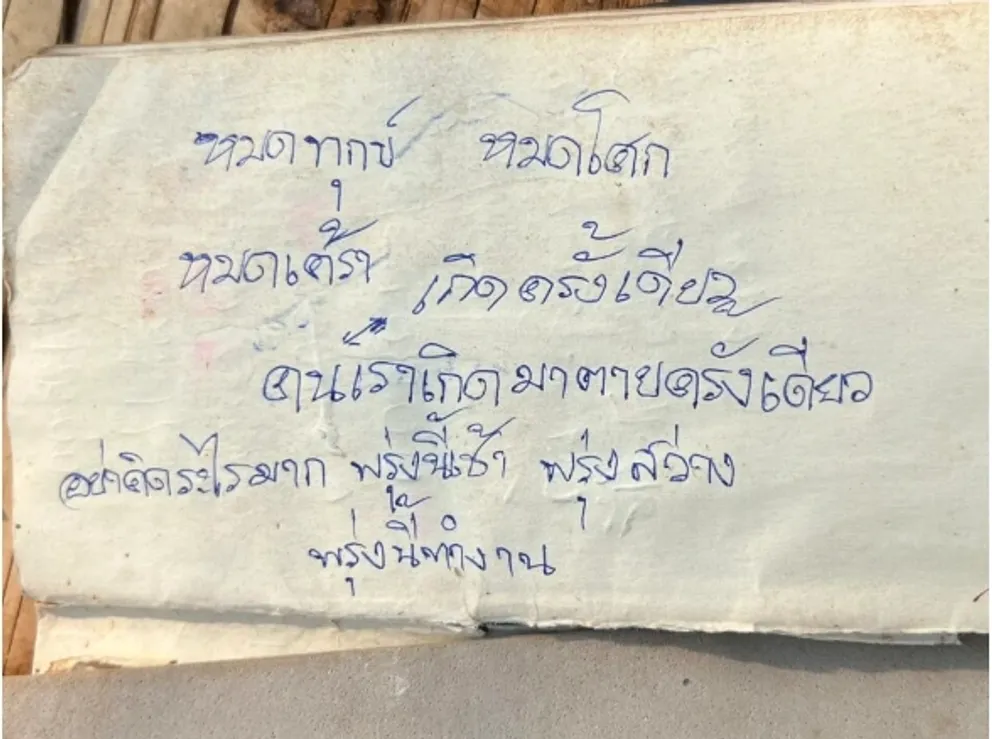 หมดทุกข์ หมดโศก
หมดเศร้า เกิดครั้งเดียว
คนเราเกิดมาตายครั้งเดียว
อย่าคิดระไรมาก พรุ่งนี้เช้า พรุ่งสว่าง
พรุ่งนี้ทำงาน